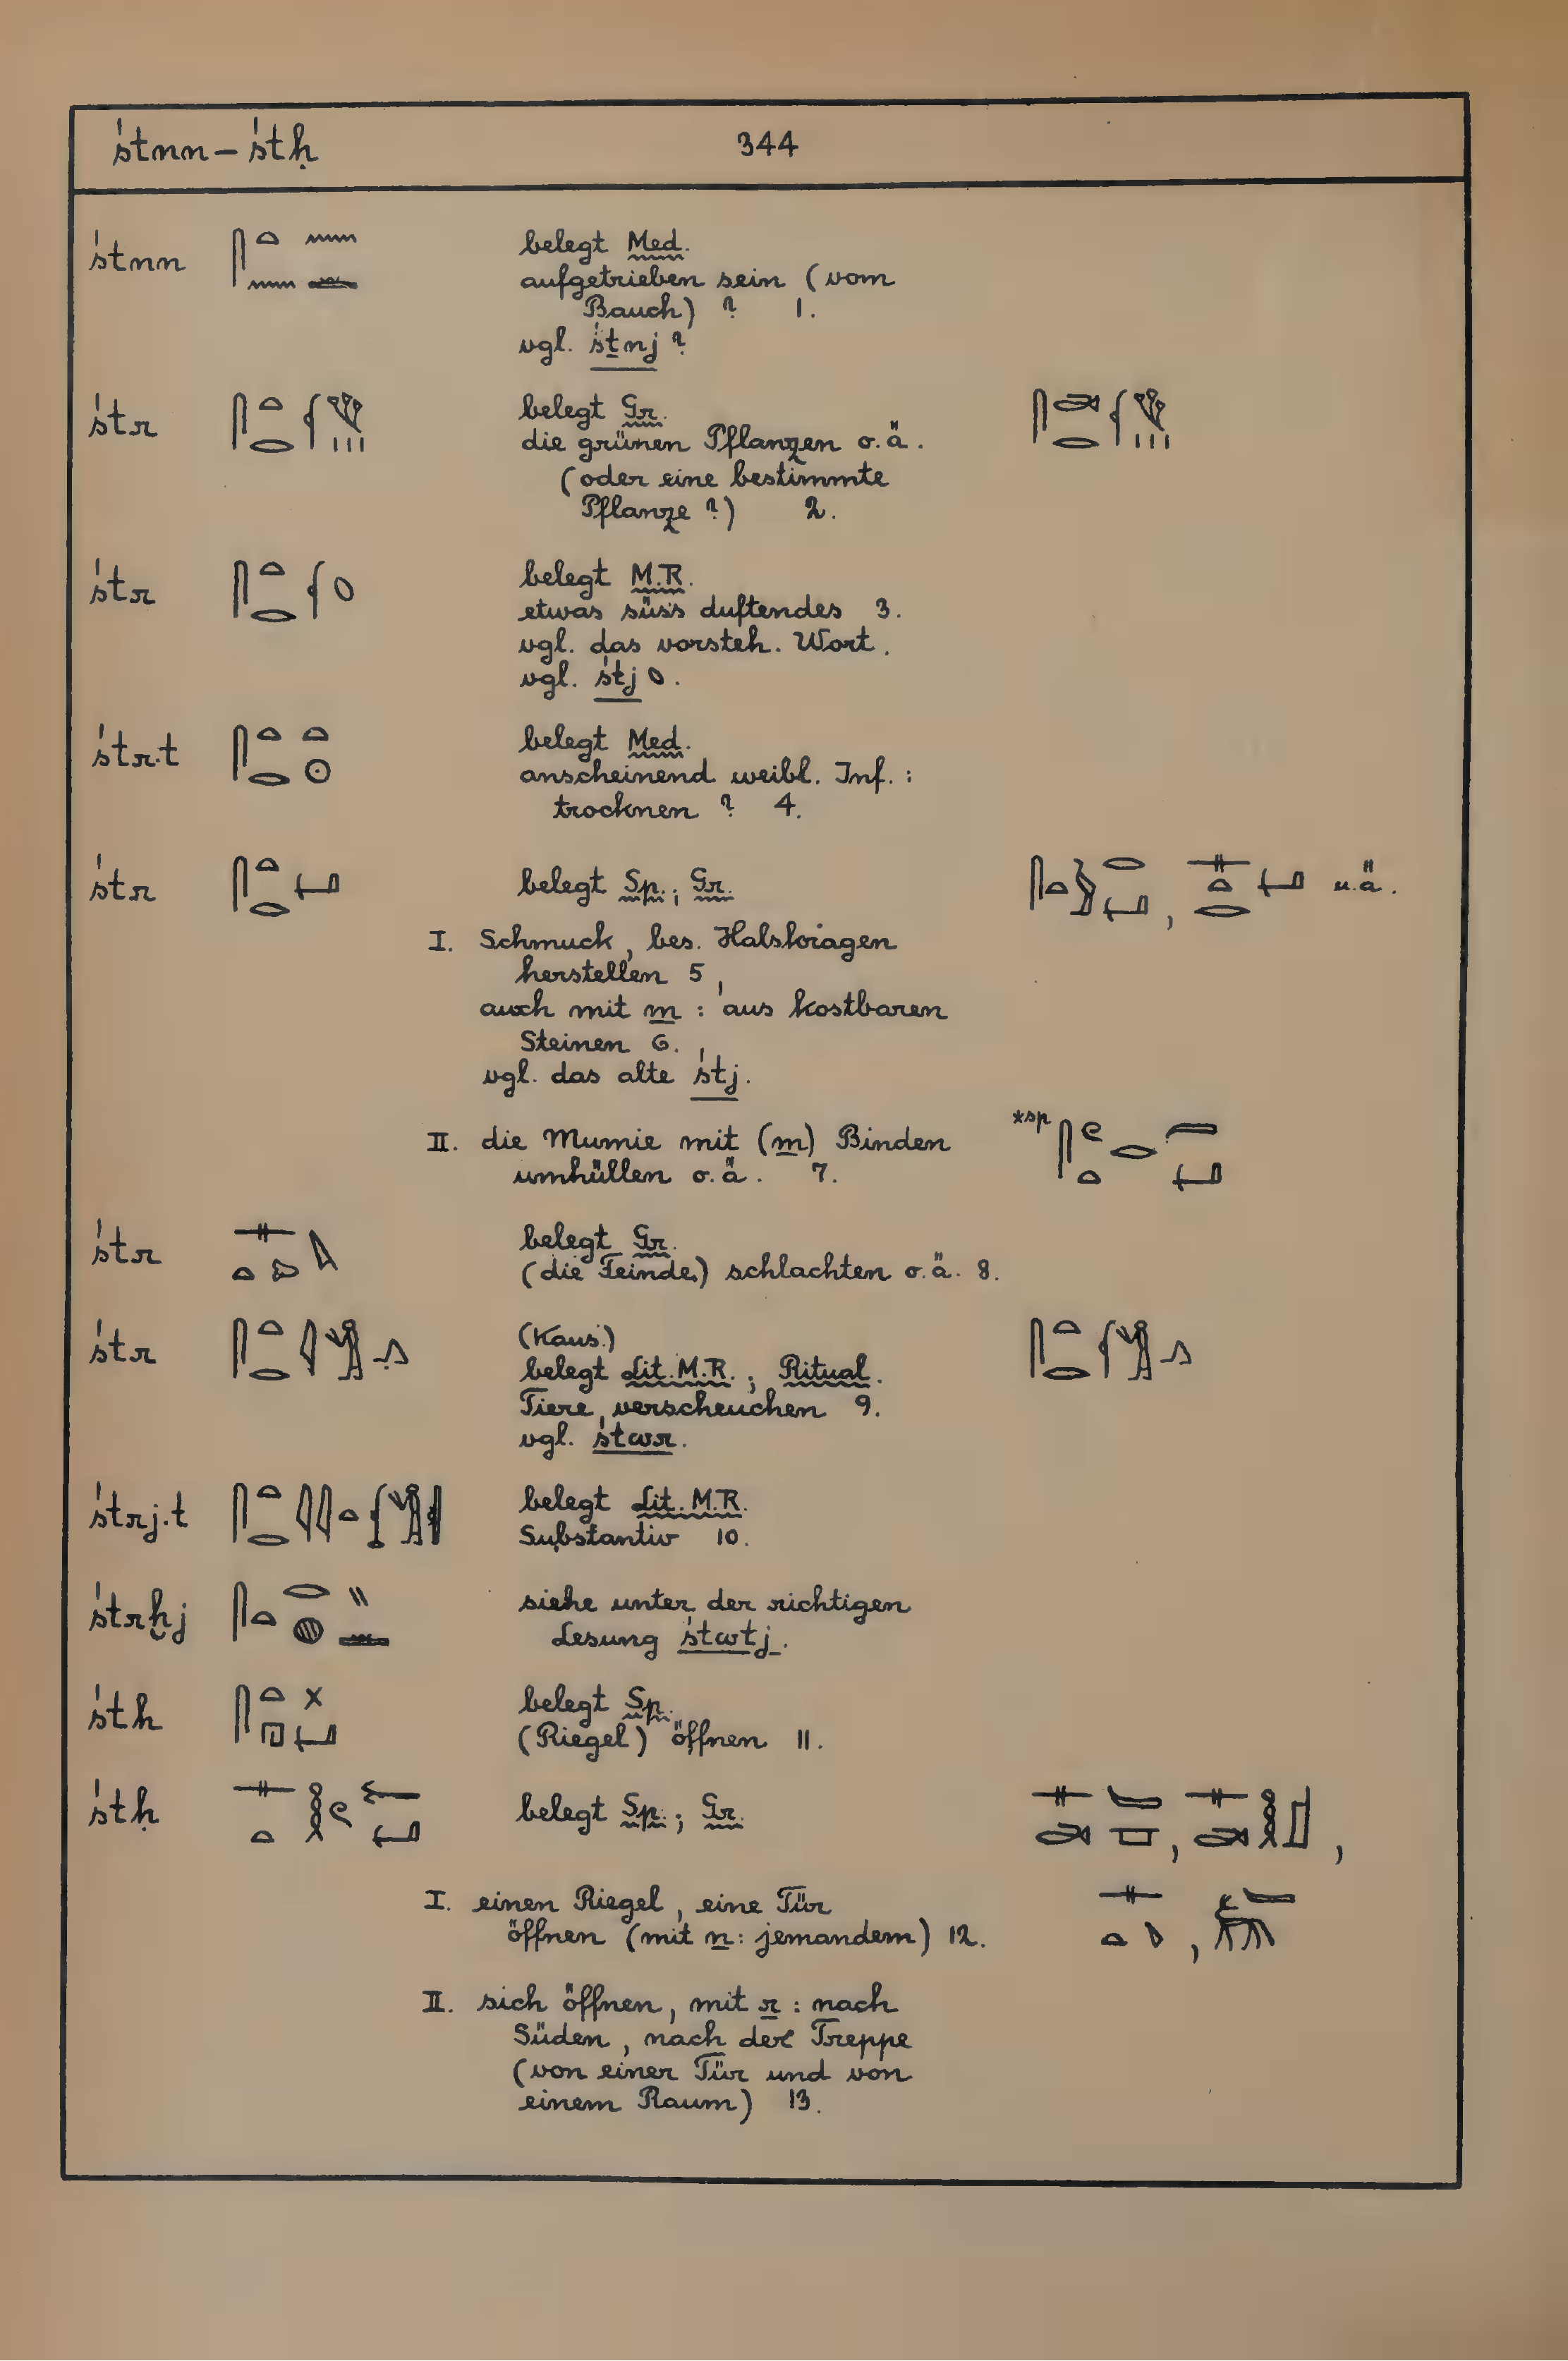 śtnn – śtḥ 344
śtnn belegt Med.
aufgetrieben sein (vom
Bauch) ? 1.
vgl. śṯnj ?
śtr belegt Gr.
die grünen Pflanzen o.ä.
(oder eine bestimmte
Pflanze ?) 2.
śtr belegt M.R.
etwas süss duftendes 3.
vgl. das vorsteh. Wort.
vgl. śtj
śtr.t belegt Med.
anscheinend weibl. Inf. :
trocknen ? 4.
śtr belegt Sp.; Gr. u.ä.
I. Schmuck, bes. Halskragen
herstellen 5,
auch mit m : aus kostbaren
Steinen 6.
vgl. das alte śtj.
II. die Mumie mit (m) Binden *sp
umhüllen o.ä. 7.
śtr belegt Gr.
(die Feinde) schlachten o.ä. 8.
śtr (Kaus.)
belegt Lit. M.R.; Ritual.
Tiere verscheuchen 9.
vgl. śtwr.
śtrj.t belegt Lit. M.R.
Substantiv 10.
śtrḫj siehe unter der richtigen
Lesung śtwtj.
śth belegt Sp.
(Riegel) öffnen 11.
śtḥ belegt Sp.; Gr.
I. einen Riegel, eine Tür
öffnen (mit n: jemandem) 12.
II. sich öffnen, mit r : nach
Süden, nach der Treppe
(von einer Tür und von
einem Raum) 13.